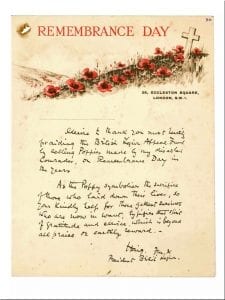 REMEMBRANCE DAY
26, ECCLESTON SQUARE,
LONDON, S.W.1.
Desire to thank you most
for aiding the British Legion Appeal Fund
by selling Poppies made by my disabled
Comrades, on Remembrance Day in
the years
As the Poppy symbolises the sacrifice
of those who laid down their lives, so
you kindly help for those gallant survivors
who are now in want, typifies that
of gratitude and service which is beyond
all praise or earthly reward. -
Haig. F.M.
President British Legion.